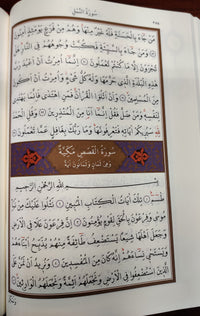 سُورَةُ النَّمْلِ
٣٨٥
مَنْ جَاءَ بِالْحَسَنَةِ فَلَهُ خَيْرٌ مِنْهَا وَهُمْ مِنْ فَزَعٍ يَوْمَئِذٍ آمِنُونَ
وَمَنْ جَاءَ بِالسَّيِّئَةِ فَكُبَّتْ وُجُوهُهُمْ فِي النَّارِ هَلْ
تُجْزَوْنَ إِلَّا مَا كُنْتُمْ تَعْمَلُونَ إِنَّمَا أُمِرْتُ أَنْ أَعْبُدَ رَبَّ
هَذِهِ الْبَلْدَةِ الَّذِي حَرَّمَهَا وَلَهُ كُلُّ شَيْءٍ وَأُمِرْتُ أَنْ أَكُونَ
مِنَ الْمُسْلِمِينَ وَأَنْ أَتْلُوَا الْقُرْآنَ فَمَنِ اهْتَدَى فَإِنَّمَا يَهْتَدِي
لِنَفْسِهِ وَمَنْ ضَلَّ فَقُلْ إِنَّمَا أَنَا مِنَ الْمُنْذِرِينَ وَقُلِ الْحَمْدُ
لِلَّهِ سَيُرِيكُمْ آيَاتِهِ فَتَعْرِفُونَهَا وَمَا رَبُّكَ بِغَافِلٍ عَمَّا تَعْمَلُونَ
سُورَةُ الْقَصَصِ مَكِّيَّةٌ
وَهِيَ ثَمَانٍ وَثَمَانُونَ آيَةً
بِسْمِ اللَّهِ الرَّحْمَنِ الرَّحِيمِ
طسم تِلْكَ آيَاتُ الْكِتَابِ الْمُبِينِ نَتْلُوا عَلَيْكَ مِنْ نَبَإِ
مُوسَى وَفِرْعَوْنَ بِالْحَقِّ لِقَوْمٍ يُؤْمِنُونَ إِنَّ فِرْعَوْنَ عَلَا فِي الْأَرْضِ
وَجَعَلَ أَهْلَهَا شِيَعًا يَسْتَضْعِفُ طَائِفَةً مِنْهُمْ يُذَبِّحُ أَبْنَاءَهُمْ
وَيَسْتَحْيِي نِسَاءَهُمْ إِنَّهُ كَانَ مِنَ الْمُفْسِدِينَ وَنُرِيدُ أَنْ نَمُنَّ عَلَى
الَّذِينَ اسْتُضْعِفُوا فِي الْأَرْضِ وَنَجْعَلَهُمْ أَئِمَّةً وَنَجْعَلَهُمُ الْوَارِثِينَ